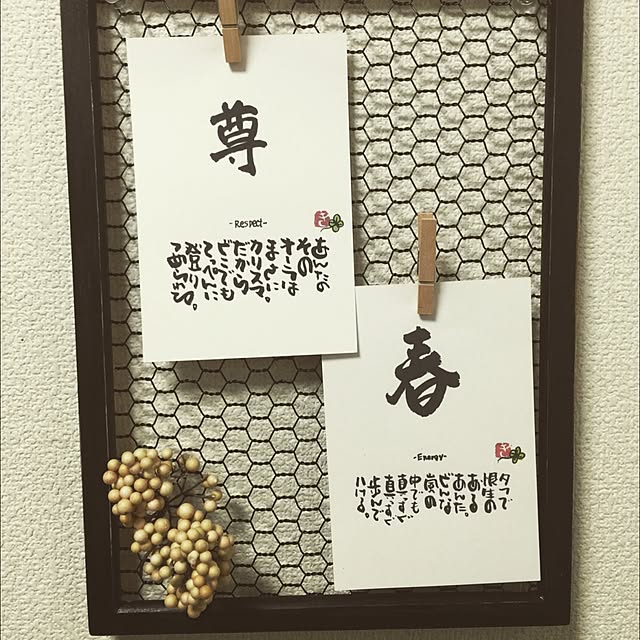 尊
-Respect-
あんたの
その
オーラは
まさに
カリスマ。
だから
てっぺんに
登り
春
-Energy-
タフで
根性の
ある
あんた。
どんな
嵐の
中でも
真っすぐ
真っすぐ
歩んで
いける。